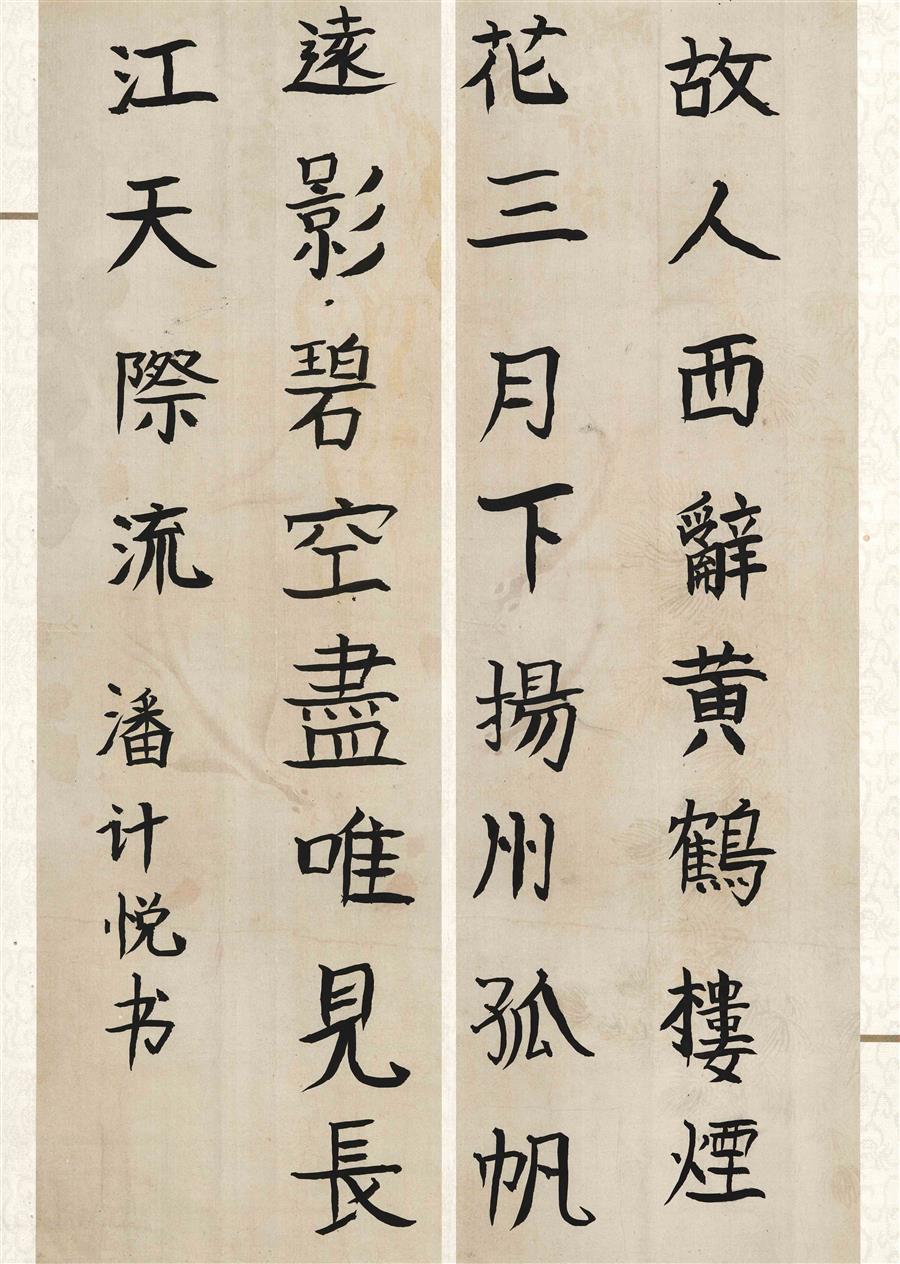 故人西辭黄鶴樓煙
花三月下揚州孤帆
遠影碧空盡唯見長
江天際流
潘计悦书